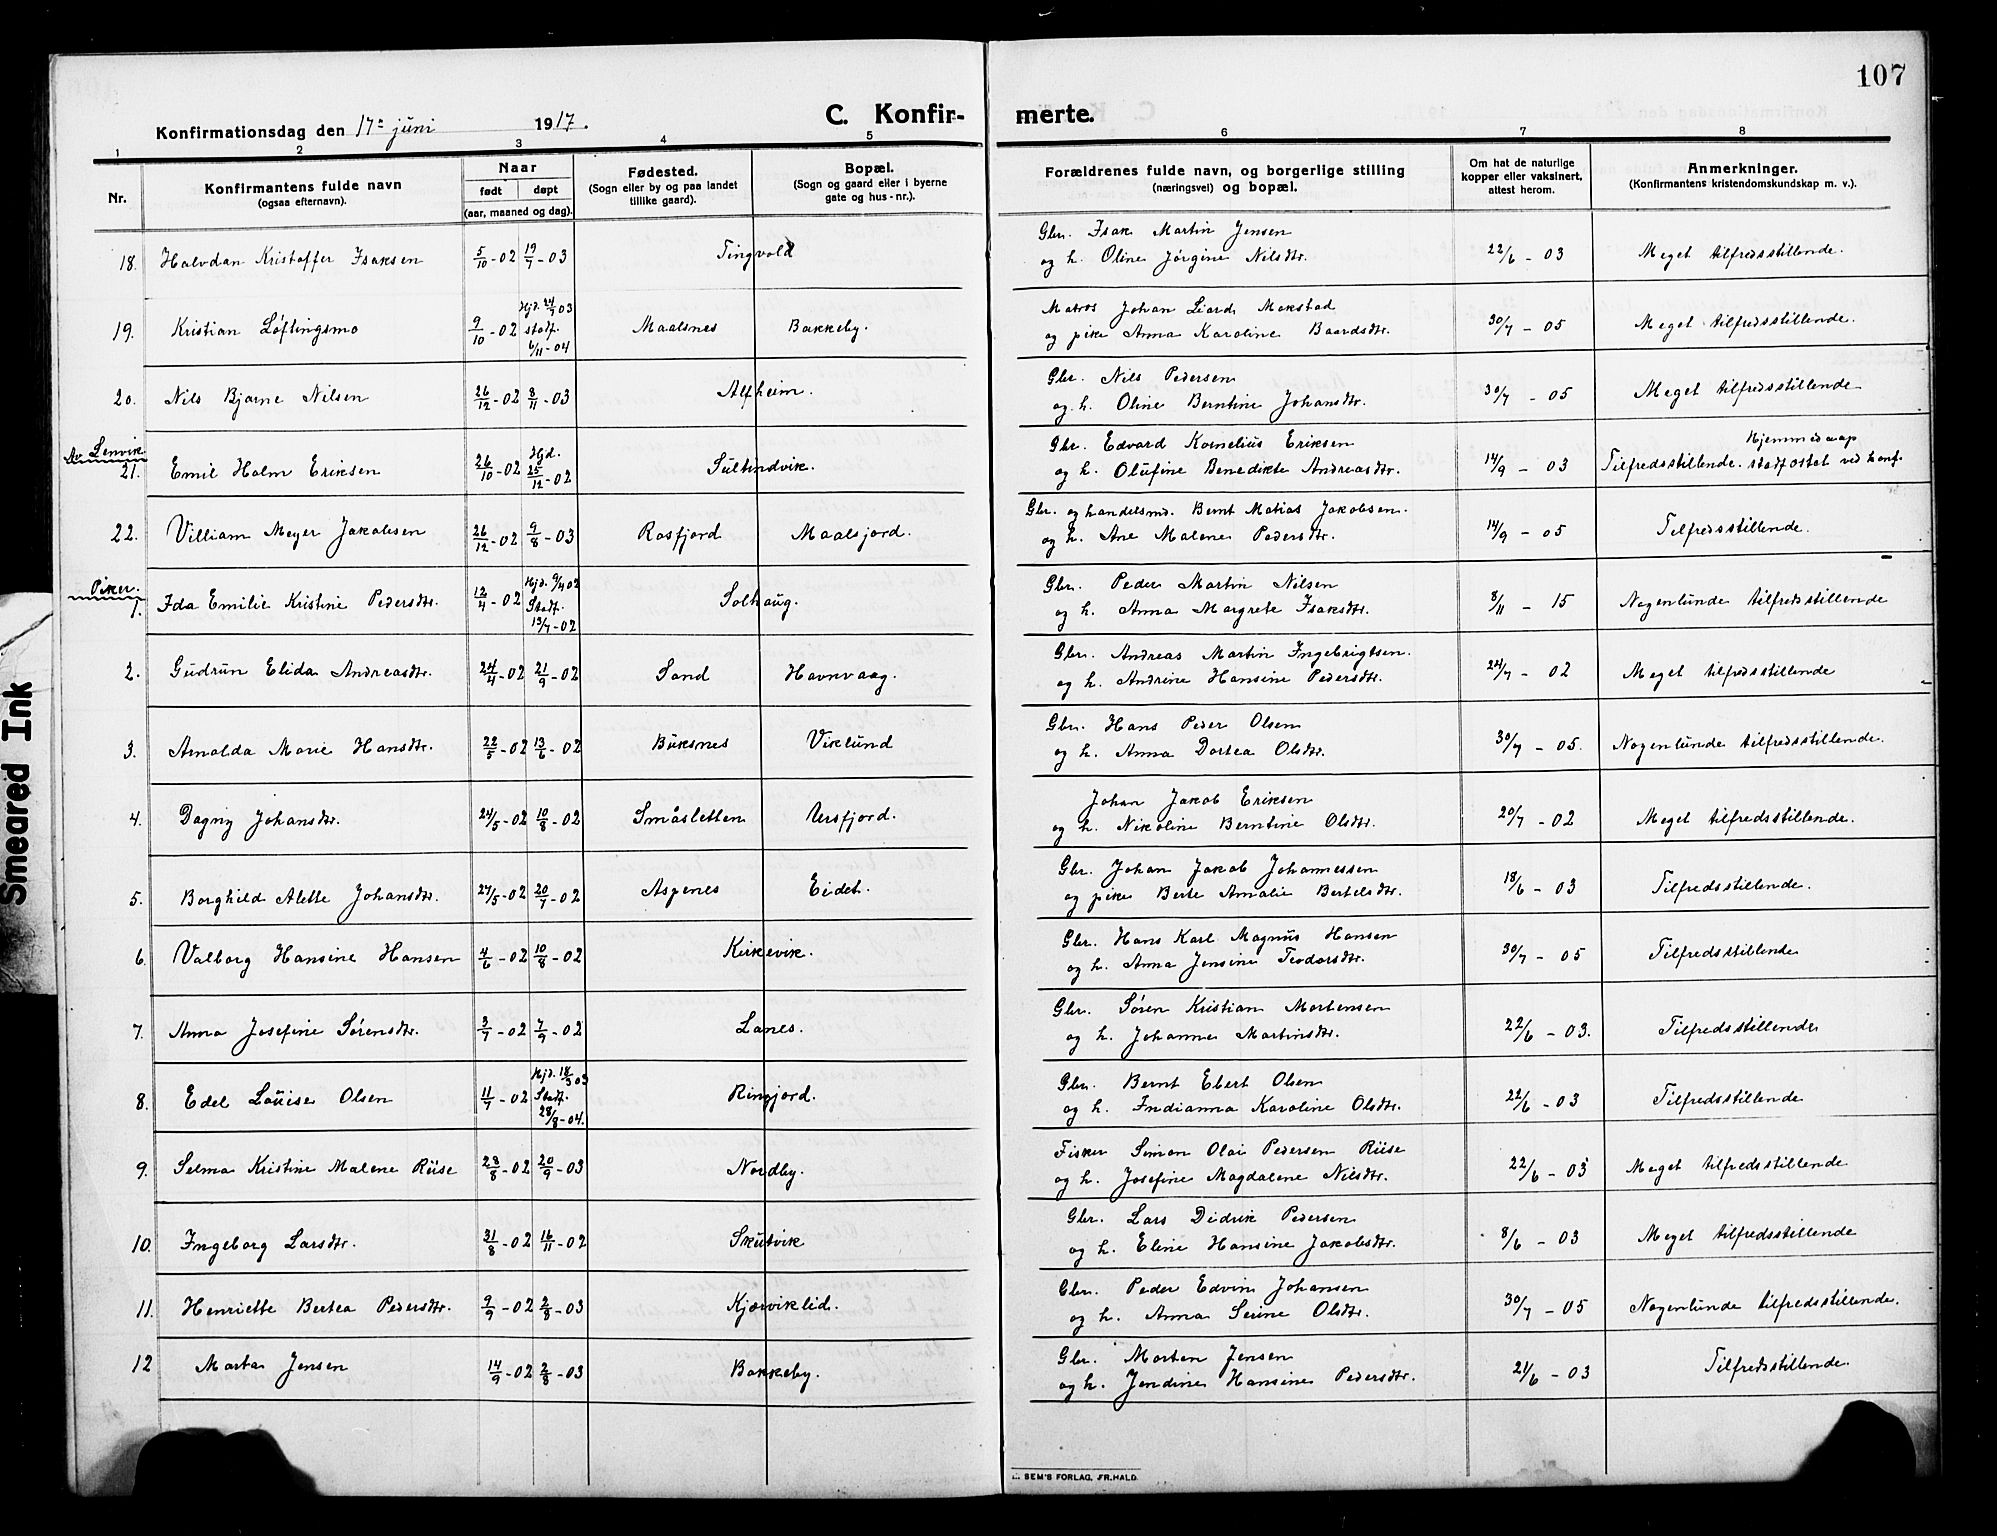 107
Smeared Ink
Konfirmationsdag den 17de juni 1917.
C. Konfir- merte.
1 2 3 4 5 6 7 8
Nr.
Konfirmantens fulde navn
(ogsaa efternavn).
Naar
født døpt
(aar, maaned og dag).
Fødested.
(Sogn eller by og paa landet
tillike gaard).
Bopæl.
(Sogn og gaard eller i byerne
gate og hus-nr.).
Forældrenes fulde navn, og borgerlige stilling
(næringsvei) og bopæl.
Om hat de naturlige
kopper eller vaksinert,
attest herom.
Anmerkninger.
(Konfirmantens kristendomskundskap m. v.).
18. Halvdan Kristoffer Isaksen 5/10-02 19/7-03 Tingvold Gbr. Isak Martin Jensen
og h. Oline Jørgine Nilsdtr. 22/6 - 03 Meget tilfredsstillende.
19. Kristian Løftingsmo 9/10-02 Hjd. 24/9 03 stadf. 6/11-04 Maalsnes Bakkeby. Matros Johan Liard Mokstad
og pike Anna Karoline Baardsdtr. 30/7 - 05 Meget tilfredsstillende.
20. Nils Bjarne Nilsen 26/12-02 8/11-03 Alfheim. Gbr. Nils Pedersen
og h. Oline Berntine Johansdtr. 30/7 - 05 Meget tilfredsstillende
Av Lenvik
21. Emil Holm Eriksen 26/10-02 Hjd. 25/12-02 Sultindvik. Gbr. Edvard Kornelius Eriksen
og h. Olufine Benedikte Andreasdtr. 14/9 - 03 Tilfredsstillende. Hjemmedaap
stadfæstet ved konf.
22. Villiam Meyer Jakobsen 26/12-02 9/8-03 Rosfjord Maalsjord. Gbr. og handelsmd. Bernt Matias Jakobsen.
og h. Ane Malene Pedersdtr. 14/9 - 05 Tilfredsstillende.
Piker.
1. Ida Emilie Kristine Pedersdtr. 12/4-02 Hjd. 9/4 02 Stadf. 13/7-02 Solhaug. Gbr. Peder Martin Nilsen
og h. Anna Margrete Isaksdtr. 8/11 - 15 Nogenlunde tilfredsstillende
2. Gudrun Elida Andreasdtr. 24/4-02 21/9-02 Sand Havnvaag. Gbr. Andreas Martin Ingebrigtsen.
og h. Andrine Hansine Pedersdtr. 24/7 - 02 Meget tilfredsstillende
3. Arnolda Marie Hansdtr. 22/5-02 13/6-02 Buksnes Viklund Gbr. Hans Peder Olsen
og h. Anna Dortea Olsdtr. 30/7 - 05. Nogenlunde tilfredsstillende.
4. Dagny Johansdtr. 24/5-02 10/8-02 Småsletten Ursfjord. Johan Jakob Eriksen
og h. Nikoline Berntine Olsdtr. 20/7 - 02 Meget tilfredsstillende.
5. Borghild Alette Johansdtr. 27/5-02 20/7-02 Aspenes Eidet. Gbr. Johan Jakob Johannessen
og pike Berte Amalie Bertelsdtr. 18/6 - 03 Tilfredsstillende.
6. Valborg Hansine Hansen 4/6-02 10/8-02 Kirkevik. Gbr. Hans Karl Magnus Hansen
og h. Anna Jensine Teodorsdtr. 30/7 - 05 Tilfredsstillende
7. Anna Josefine Sørensdtr. 3/7-02 7/9-02 Lanes. Gbr. Søren Kristian Mortensen
og h. Johanna Martinsdtr. 22/6 - 03. Tilfredsstillende
8. Edel Louise Olsen 11/7-02 Hjd. 18/3 03 Stadf. 28/8-04. Rinsjord. Gbr. Bernt Ebert Olsen
og h. Indianna Karoline Olsdtr. 22/6 - 03 Tilfredsstillende
9. Selma Kristine Malene Riise 28/8-02 20/9-03 Nordby. Fisker Simon Olai Pedersen Riise
og h. Josefine Magdalene Nilsdtr. 22/6 - 03 Meget tilfredsstillende
10. Ingeborg Larsdtr. 31/8-02 16/11-02 Skutvik Gbr. Lars Didrik Pedersen
og h. Eline Hansine Jakobsdtr. 8/6 - 03 Meget tilfredsstillende
11. Henriette Bertea Pedersdtr. 9/9-02 2/8-03 Kjærviklid. Gbr. Peder Edvin Johansen
og h. Anna Serine Olsdtr. 30/7 - 05 Nogenlunde tilfredsstillende.
12 Marta Jensen 14/9-02 2/8-03 Bakkeby. Gbr. Morten Jensen
og h. Jendine Hansine Pedersdtr. 21/6 - 03 Tilfredsstillende.
SEM'S FORLAG, FR.HALD.